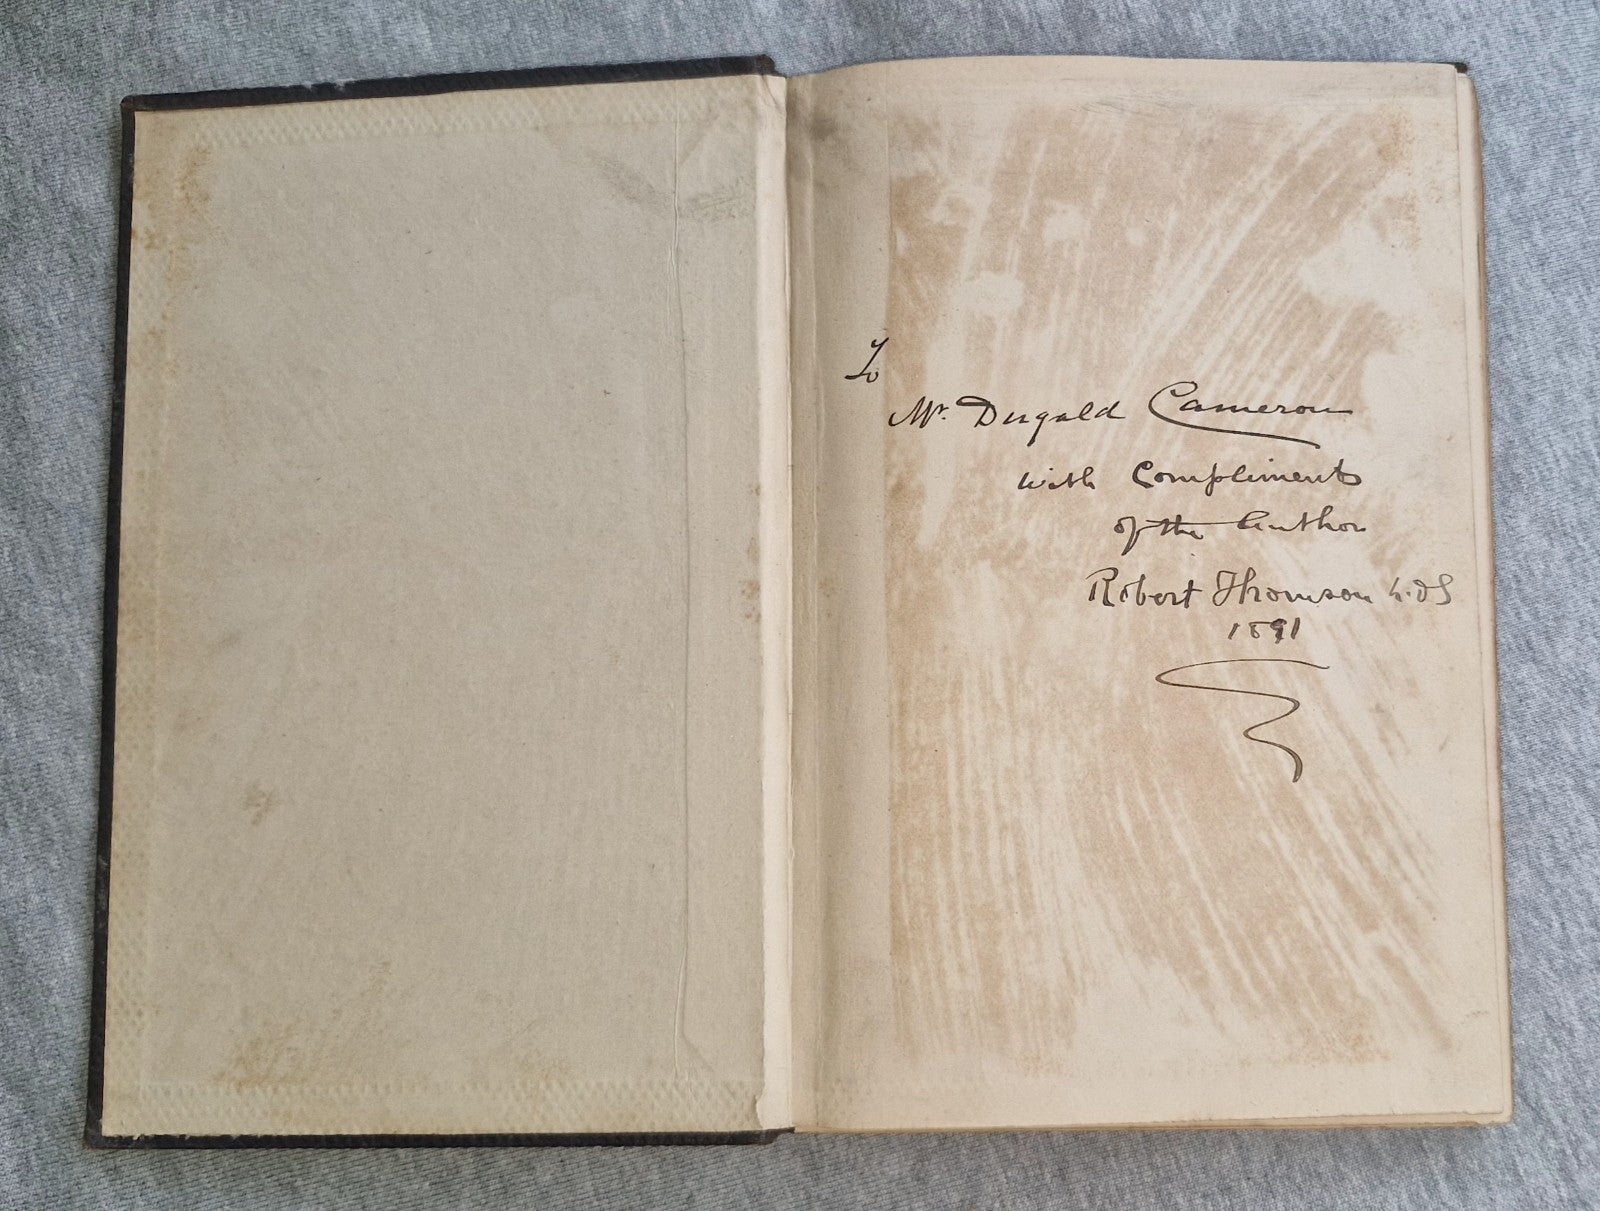 To
Mr. Dugald Cameron
with Compliments
of the Author
Robert Thomson L.D.S
1891